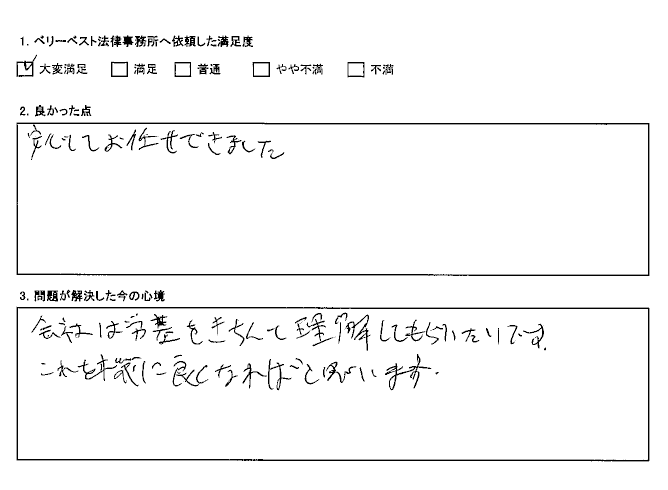 1. ベリーベスト法律事務所へ依頼した満足度
大変満足 満足 普通 やや不満 不満
2. 良かった点
安心してお任せできました
3. 問題が解決した今の心境
会社は労基をきちんと理解してもらいたいです。
これを機に良くなればと思います。